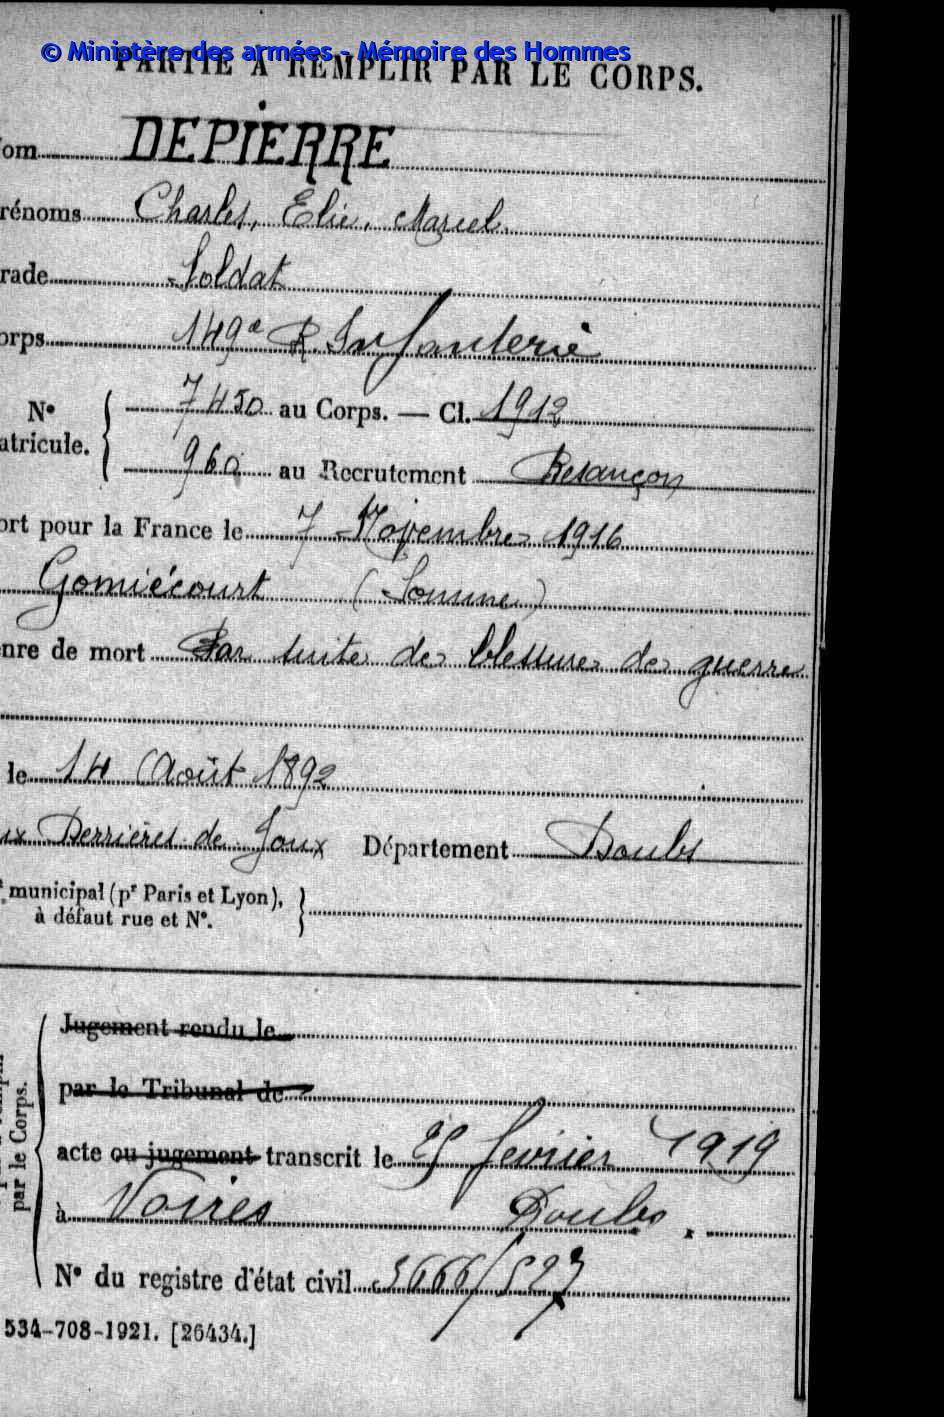 © Ministère des armées - Mémoire des Hommes
PARTIE À REMPLIR PAR LE CORPS.
om DEPIERRE
rénoms Charles, Elie, Marcel.
rade Soldat
orps 149e R. Infanterie
N° atricule. 7450 au Corps. — Cl. 1912
960 au Recrutement Besançon
ort pour la France le 7 Novembre 1916
Gomiécourt (Somme)
nre de mort Par suite de blessures de guerre
le 14 Août 1892
ux Derrières de Joux Département Doubs
municipal (pr Paris et Lyon),
à défaut rue et N°.
Jugement rendu le
par le Tribunal de
par le Corps.
acte ou jugement transcrit le 25 février 1919
à Voires Doubs.
N° du registre d'état civil 3666/527
534-708-1921. [26434.]